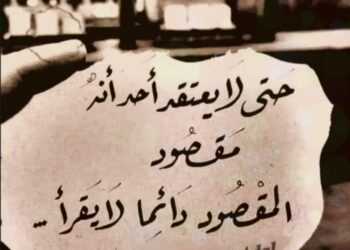 حَتى لَا يعتقد أَحد أنهُ
مَقصُود
المقْصُود دَائِما لَا يَقرأ ...